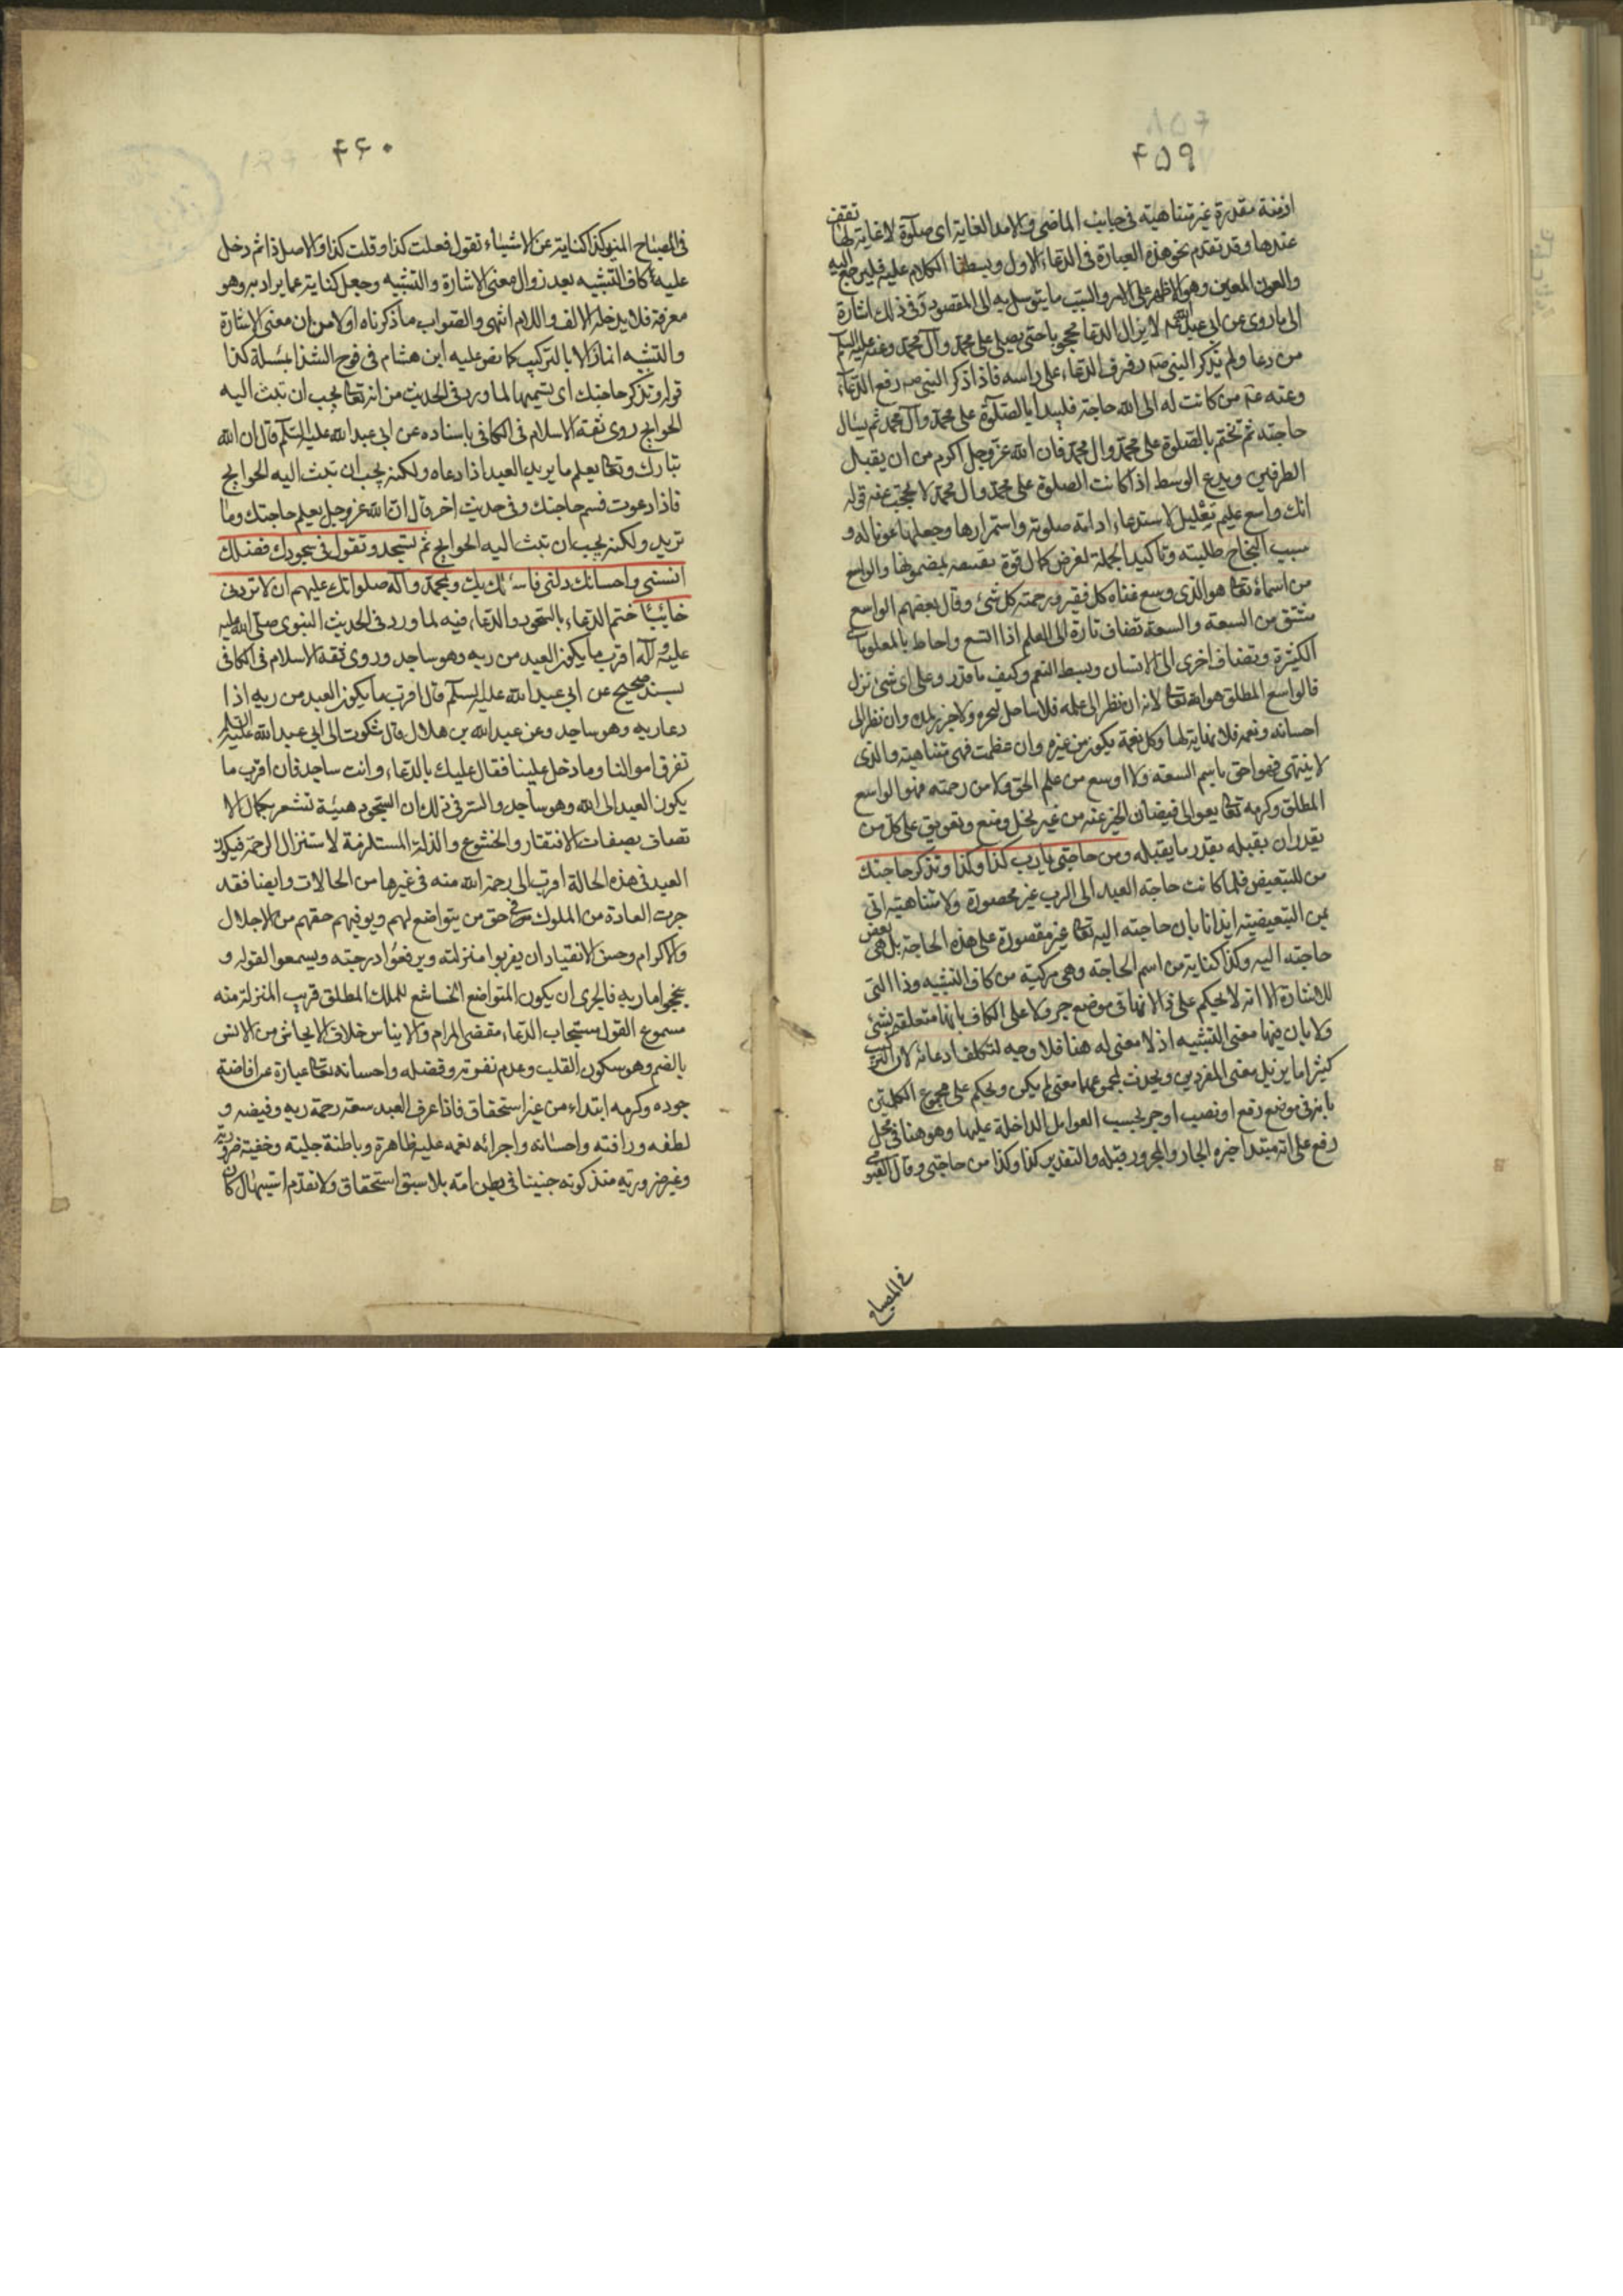 ۴۵۹
ازمنة مقدرة غير متناهية في جانب الماضي والامد الغاية اى صلوة لا غاية لها تقف
عندها وقد تقدم نحو هذه العبارة في الدعاء الاول وبسطنا الكلام عليه فليرجع اليه
والعون المعين وهو الظهير على الامر والسبب ما يتوسل به الى المقصود وفي ذلك اشارة
الى ما روى عن ابى عبد الله لا يزال الدعا محجوبا حتى يصلى على محمد وآل محمد وعنه عليه السلم
من دعا ولم يذكر النبى رفرف الدعاء على راسه فاذا ذكر النبى رفع الدعاء
وعنه من كانت له الى الله حاجة فليبدا بالصلوة على محمد وآل محمد ثم يسئال
حاجته ثم تختم بالصلوة على محمد وال محمد فان الله عز وجل اكرم من ان يقبل
الطرفين ويدع الوسط اذا كانت الصلوة على محمد وال محمد لا تحجب عنه قوله
انك واسع عليم تعليل لاستدعاء ادامة صلوته واستمرارها وجعلها عونا له و
سبب النجاح طلبته وتاكيد الجملة لغرض كمال قوة يقينه بمضمونها والواسع
من اسمائه تعا هو الذى وسع غناه كل فقير ورحمته كل شئ وقال بعضهم الواسع
مشتق من السعة والسعة تضاف تارة الى العلم اذا اتسع واحاط بالمعلومات
الكثيرة وتضاف اخرى الى الاحسان وبسط النعم وكيف ما قدر وعلى اى شئ نزل
فالواسع المطلق هو الله تعا لانه ان نظر الى علمه فلا ساحل لبحره ولا جزر لمده وان نظر الى
احسانه ونعمه فلا نهاية لها وكل نعمة يكون من غيره وان عظمت فهى متناهية والذى
لا ينتهى فهو احق باسم السعة ولا اوسع من علم الحق ولا من رحمته فهو الواسع
المطلق وكرمه تعا يعود الى فيضان الخير عنه من غير بخل ومنع وتعويق على كل من
يقدر ان يقبله بقدر ما يقبله ومن حاجتى يا رب كذا وكذا وتذكر حاجتك
من للتبعيض فلما كانت حاجة العبد الى الرب غير محصورة ولا متناهية اتى
بمن التبعيضية ايذانا بان حاجته اليه تعا غير مقصورة على هذه الحاجة بل هى بعض
حاجته اليه وكذا كناية من اسم الحاجة وهى مركبة من كاف التشبيه وذا التى
للاشارة الا انه لا يحكم على ذا لانها في موضع جر ولا على الكاف بانها متعلقة بشئ
ولا بان فيها معنى التشبيه اذ لا معنى له هنا فلا وجه لتكلف ادعائه لان التركيب
كثيرا ما يزيل معنى المفردين ويحدث لمجموعهما معنى لم يكن ويحكم على مجموع الكلمتين
بانه في موضع رفع او نصب او جر بحسب العوامل الداخلة عليها وهو هنا في محل
رفع على انه مبتدا خبره الجار والمجرور قبله والتقدير كذا وكذا من حاجتى وقال الفيومى
في المصباح
۴۶۰
في المصباح المنير كذا كناية عن الاشياء تقول فعلت كذا وقلت كذا والاصل ذا ثم دخل
عليه كاف التشبيه بعد زوال معنى الاشارة والتشبيه وجعل كناية عما يراد به وهو
معرفة فلا يدخله الالف واللام انتهى والصواب ما ذكرناه اولا من ان معنى الاشارة
والتشبيه انما زالا بالتركيب كما نص عليه ابن هشام في فوح الشذا بمسئلة كذا
قوله وتذكر حاجتك اى تسميها لما ورد في الحديث من انه تعا يحب ان تبث اليه
الحوايج روى ثقة الاسلام في الكافى باسناده عن ابى عبد الله عليه السلم قال ان الله
تبارك وتعا يعلم ما يريد العبد اذا دعاه ولكنه يحب ان تبث اليه الحوايج
فاذا دعوت فسم حاجتك وفي حديث اخر قال ان الله عز وجل يعلم حاجتك وما
تريد ولكنه يحب ان تبث اليه الحوايج ثم تسجد وتقول في سجودك فضلك
انسنى واحسانك دلنى فاسئلك بك وبمحمد وآله صلواتك عليهم ان لا تردنى
خائبا ختم الدعاء بالسجود والدعاء فيه لما ورد في الحديث النبوى صلى الله عليه
عليه وآله اقرب ما يكون العبد من ربه وهو ساجد وروى ثقة الاسلام في الكافى
بسند صحيح عن ابى عبد الله عليه السلم قال اقرب ما يكون العبد من ربه اذا
دعا ربه وهو ساجد وعن عبد الله بن هلال قال شكوت الى ابى عبد الله عليه السلم
تفرق اموالنا وما دخل علينا فقال عليك بالدعاء وانت ساجد فان اقرب ما
يكون العبد الى الله وهو ساجد والسر في ذلك ان السجود هيئة تشعر بكمال الا
تصاف بصفات الافتقار والخشوع والذلة المستلزمة لاستنزال الرحمة فيكون
العبد في هذه الحالة اقرب الى رحمة الله منه في غيرها من الحالات وايضا فقد
جرت العادة من الملوك في حق من يتواضع لهم ويوفيهم حقهم من الاجلال
والاكرام وحسن الانقياد ان يقربوا منزلته ويرفعوا درجته ويسمعوا لقوله و
ينجحوا ماربه فالحرى ان يكون المتواضع الخاشع للملك المطلق قريب المنزلة منه
مسموع القول مستجاب الدعاء مقضى المرام والايناس خلاف الايحاش من الانس
بالضم وهو سكون القلب وعدم نفوره وفضله واحسانه تعا عبارة عن افاضة
جوده وكرمه ابتداء من غير استحقاق فاذا عرف العبد سعة رحمة ربه وفيضه و
لطفه ورافته واحسانه واجرائه نعمه عليه ظاهرة وباطنة جلية وخفية ضرورية
وغير ضرورية منذ كونه جنينا في بطن امه بلا سبق استحقاق ولا تقدم استيهال كان